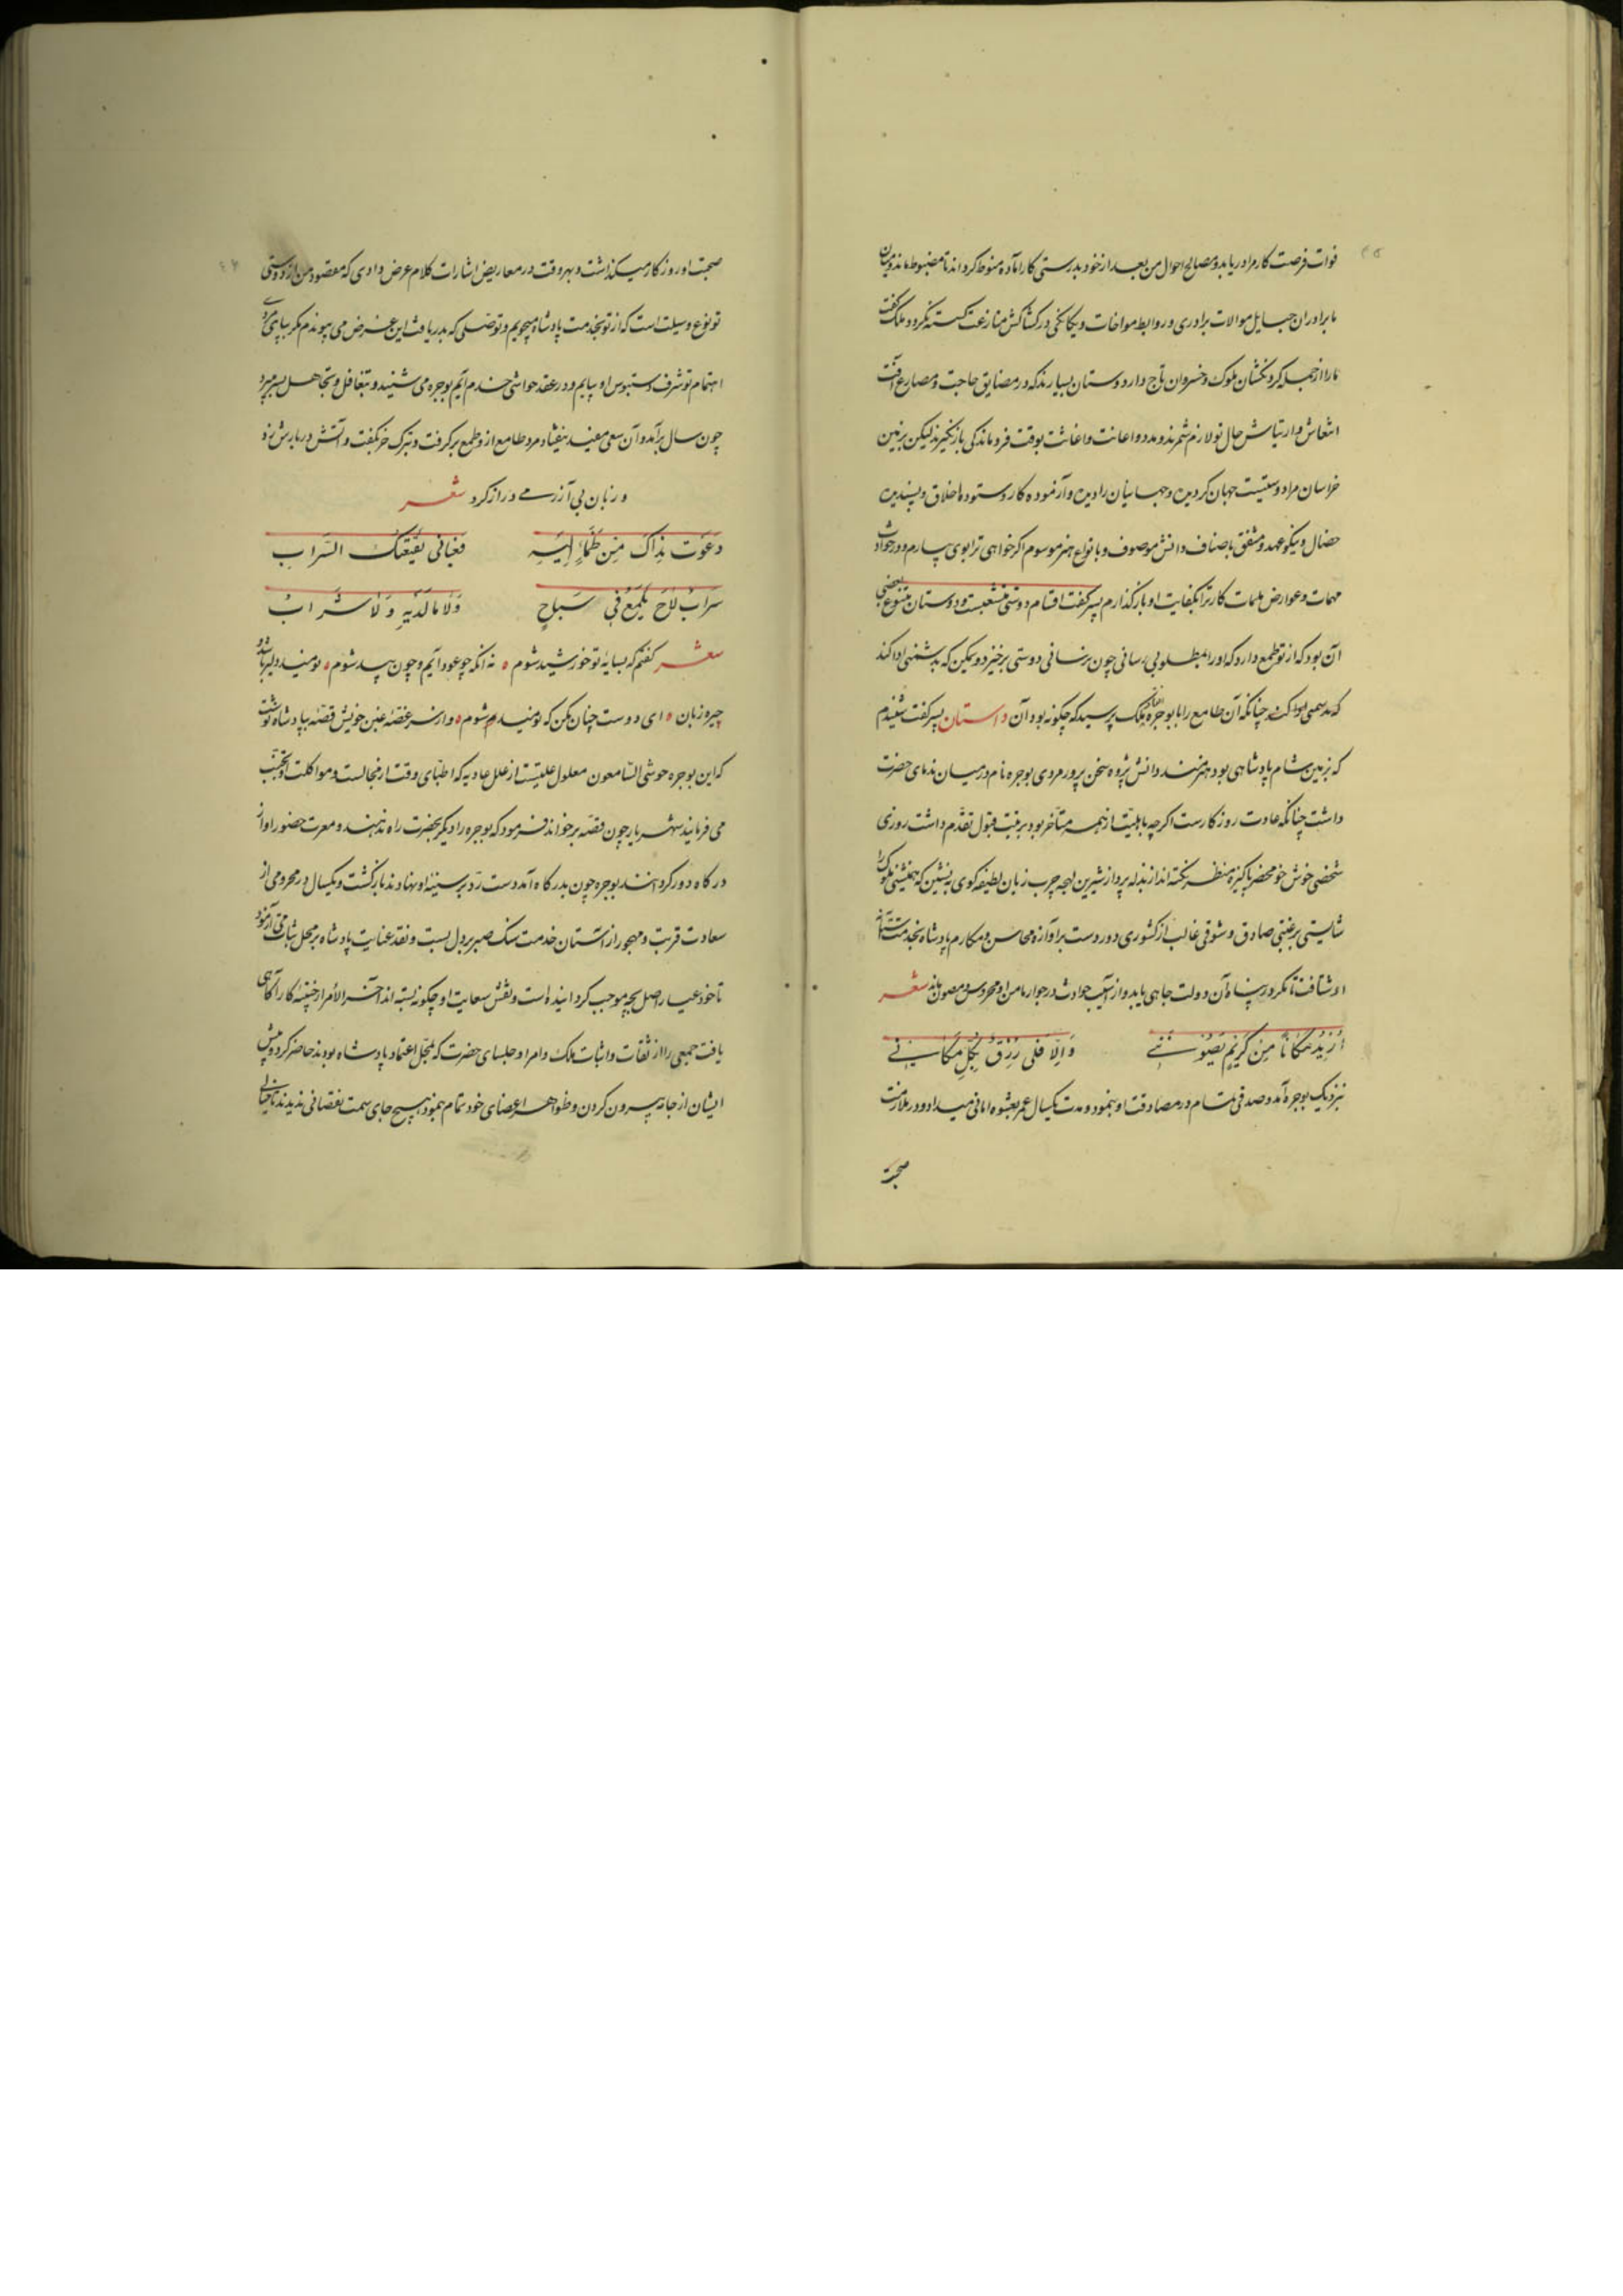 فوات فرصت کار مرا دریابد و مصالح احوال من بعد از خود بدرستی کارآمده منوط کرداند تا مضبوط ماند و میان
ما برادران حبایل موالات برادری و روابط مواخات و یکانکی در کشاکش منازعت کسسته نکردد ملک کفت
مارا از جمله کردنکشان ملوک و خسروان تاج دار دوستان بسیارند که در مضایق حاجت و مصارع آفت
انتعاش و ارتیاش حال تو لازم شمرند و مدد و اعانت و اغاثت بوقت فروماندکی بازنکیرند لیکن بزمین
خراسان مرا دوستیست جهان کردیده و جهانیان را دیده و آزموده کار و ستوده اخلاق و پسندیده
خصال و نیکو عهد و مشفق باصناف دانش موصوف و بانواع هنر موسوم اکر خواهی ترا بوی سپارم و در حوادث
مهمات و عوارض ملمات کار ترا بکفایت او بازکذارم پسر کفت اقسام دوستی متشعبست و دوستان متنوع بعضی
آن بود که از تو طمع دارد که او را بمطلوبی رسانی چون نرسانی دوستی برخیزد و ممکن که بدشمنی ادا کند
چنانکه آن طامع را با بوجره افتاد ملک پرسید که چکونه بود آن داستان پسر کفت شنیدم
که بزمین شام پادشاهی بود هنرمند دانش پژوه سخن پرور مردی بوجره نام در میان ندمای حضرت
داشت چنانکه عادت روزکارست اکرچه باهلیت از همه متأخر بود برتبت قبول تقدم داشت روزی
شخصی خوش خو محضر پاکیزه منظر نکته انداز بذله پرداز شیرین لهجه چرب زبان لطیفه کوی که همنشینی ملوک را
شایستی برغبتی صادق و شوقی غالب از کشوری دور دست بر آوازه محاسن و مکارم پادشاه بخدمت آستانه
او شتافت تا مکر در پناه آن دولت جاهی یابد و از آسیب حوادث در جوار مأمن او محروس و مصون ماند شعر
أرید مکانا من کریم یصوننی والا فلی رزق بکل مکان
بنزدیک بوجره آمد و صدقی تمام در مصادقت او بنمود و مدت یکسال عمر بعشوه امانی میداد و در ملازمت
صحبت
صحبت او روزکار میکذاشت و بهر وقت در معاریض اشارات کلام عرض دادی که مقصود من از دوستی
تو نوع وسیلت است که از تو بخدمت پادشاه میجویم و توصلی که بدریافت این غرض می پیوندم مکر
اهتمام تو شرف دستبوس او بیابم و در عقد حواشی خدم آیم بوجره می شنید و بتغافل و تجاهل بسر میبرد
چون سال برآمد و آن سعی مفید نیفتاد مرد طامع ازو طمع برکرفت و بترک خیر بکفت و آتش در بارش زد
و زبان بی آزرمی دراز کرد شعر
دعوت نداک من ظمإ إلیه فعنانی بقیعتک السراب
سراب لاح یلمع فی سباخ ولا ماء لدیه ولا شراب
شعر کفتم که بسایه تو خورشید شوم نه آنکه چو عود آیم و چون بید شوم نومید دلیر باشد و
چیره زبان ای دوست چنان مکن که نومید شوم و از سر غصه غبن خویش قصه بپادشاه نوشت
که این بوجره حوشی السامعون معلول علتیست از علل عادیه که اطبای وقت از مجالست و مواکلت او تجنب
می فرمایند شهریار چون قصه برخواند فرمود که بوجره را دیکر بحضرت راه ندهند و معرت حضور او از
درکاه دور کردانند بوجره چون بدرکاه آمد دست رد بر سینه او نهادند بازکشت و یکسال در محرومی از
سعادت قربت و مهجور از آستان خدمت سنک صبر بر دل بست و نقد عنایت پادشاه بر محک ثبات می آزمود
تا خود عیار اصل بچه موجب کردانیده است و نقش سعایت او چکونه بسته اند آخر الأمر از خبیئه کار آکاهی
یافت جمعی را از ثقات و اثبات ملک و امرا و جلسای حضرت که محل اعتماد پادشاه بودند حاضر کرد و پیش
ایشان از جامه بیرون کردن و ظواهر اعضای خود تمام بنمود هیچ جای سمت نقصانی ندیدند